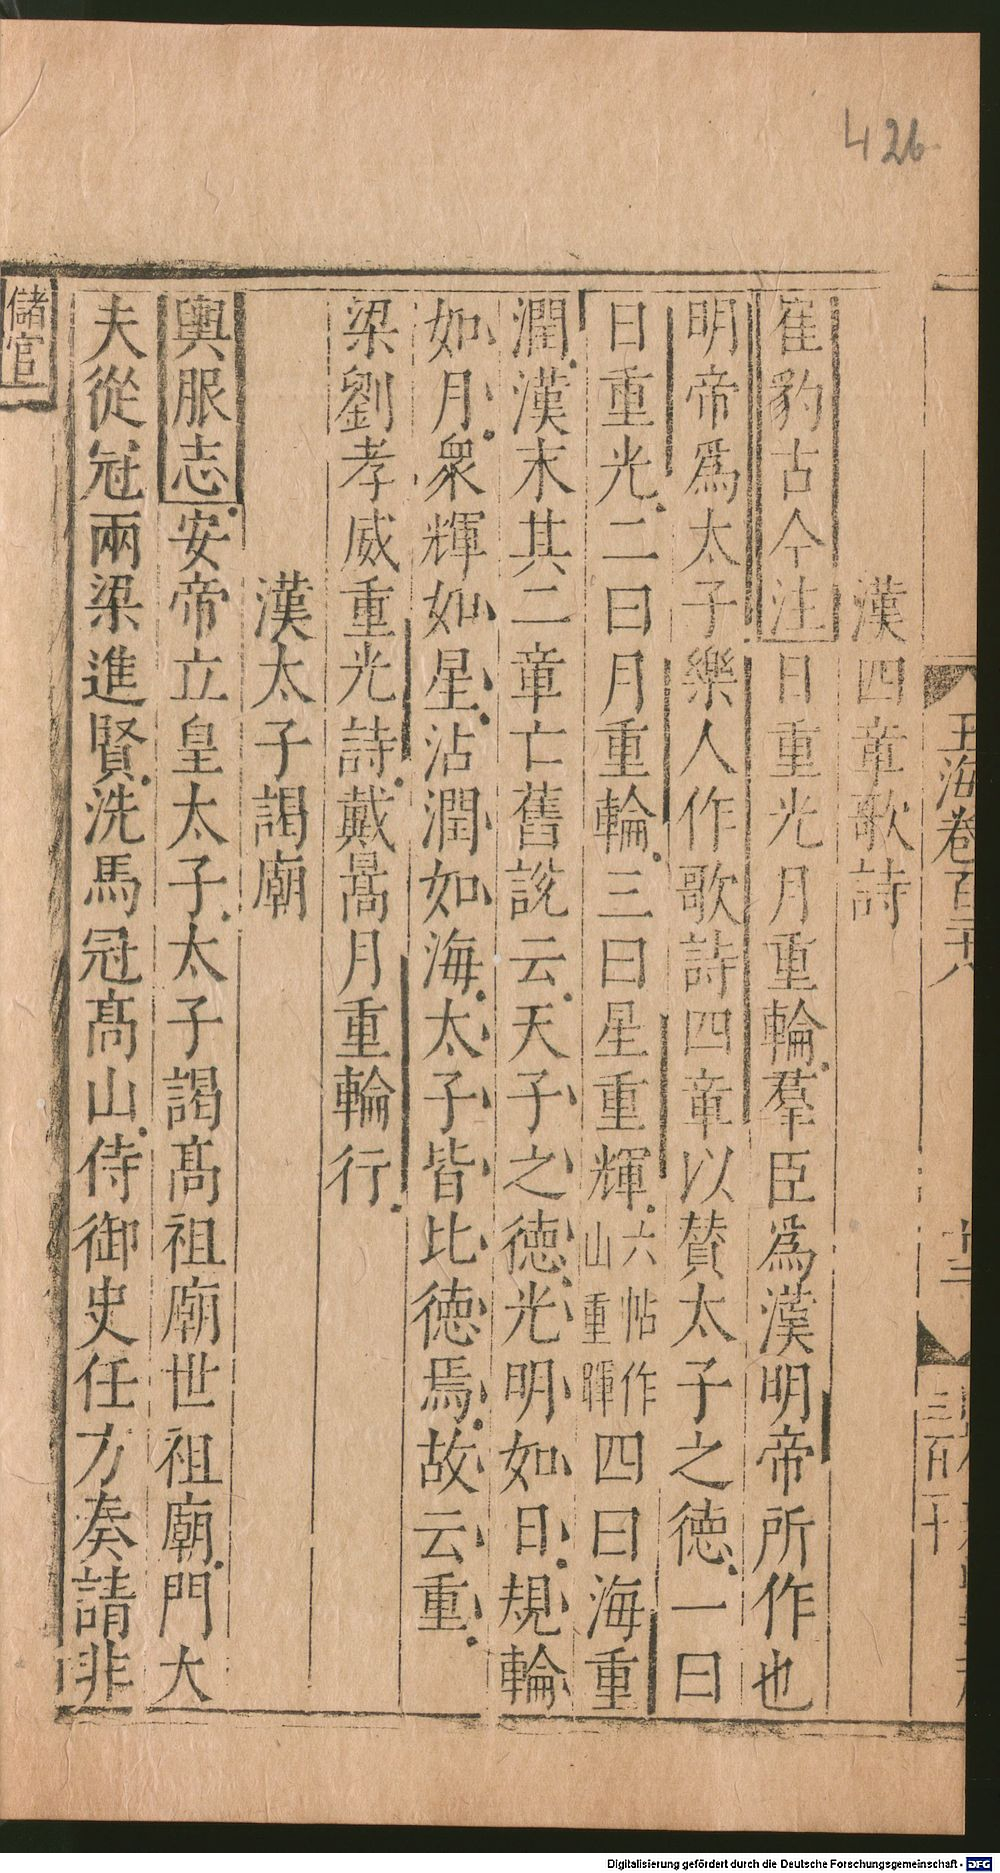 426
漢四章歌詩
崔豹古今注日重光月重輪羣臣爲漢明帝所作也
明帝爲太子樂人作歌詩四章以賛太子之德一曰
日重光二曰月重輪三曰星重輝六帖作山重暉四曰海重
潤漢末其二章亡舊說云天子之德光明如日規輪
如月衆輝如星沾潤如海太子皆比德焉故云重
梁劉孝威重光詩戴暠月重輪行
漢太子謁廟
輿服志安帝立皇太子太子謁髙祖廟世祖廟門大
夫從冠兩梁進賢洗馬冠髙山侍御史任方奏請非
儲官
玉海卷百二十八
三百二十
Digitalisierung gefördert durch die Deutsche Forschungsgemeinschaft - DFG